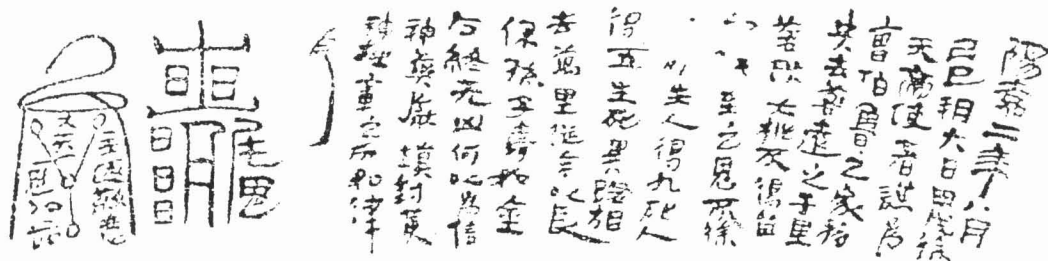 陽嘉二年八月
己巳朔六日甲戌徐
天帝使者謹為
曹伯魯之家移
央去咎遠之千里
咎殃大桃不得留
至之鬼所徐
生人得九死人
得五生死異路相
去萬里從今以長
保孫子壽如金
石終无凶何以為信
神藥厭填封黃
神越章之印如律
令